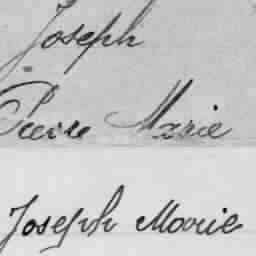 Joseph
Pierre Marie
Joseph Marie